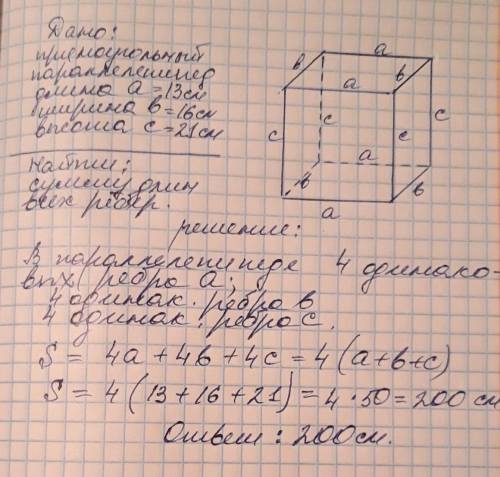 Дано:
прямоугольный
параллелепипед
длина a = 13см
ширина b = 16см
высота c = 21см
Найти:
сумму длин
всех рёбер.
решение:
В параллелепипеде 4 одинако-
вых ребра a;
4 одинак. ребра b
4 одинак. ребра c.
S = 4a + 4b + 4c = 4(a+b+c)
S = 4(13+16+21) = 4·50 = 200 см
Ответ: 200см.
a
b
b
a
c
c
c
c
a
b
b
a